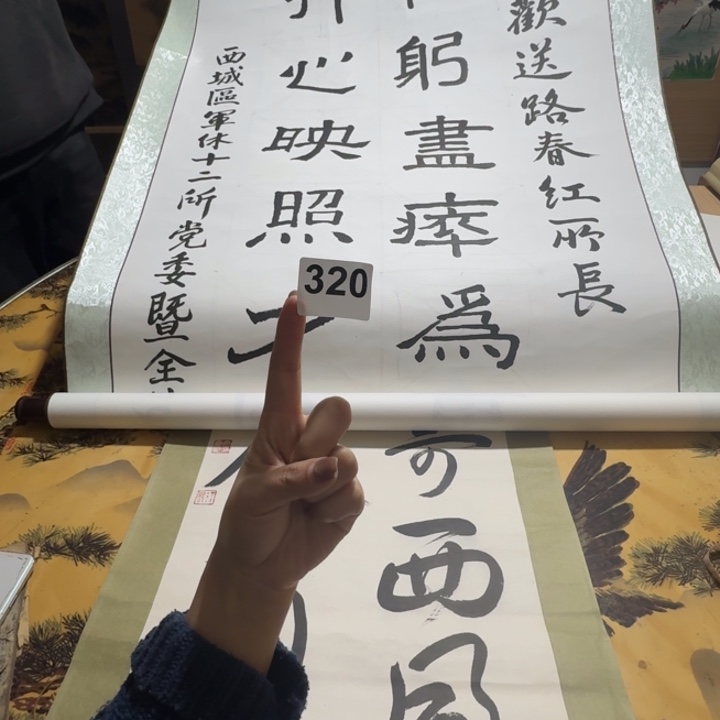 歡送路春紅所長
躬盡瘁為
心映照
西城區軍休十二所党委暨全
320
西